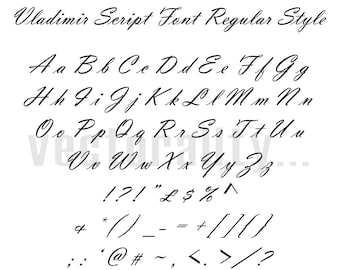 Vladimir Script Font Regular Style
A a B b C c D d E e F f G g
H h I i J j K k L l M m N n
O o P p Q q R r S s T t U u
V v W w X x Y y Z z
! ? ! " £ $ % ^
& * ( ) _ - = + [ ] { }
; : ' @ # ~ , < . > / ?